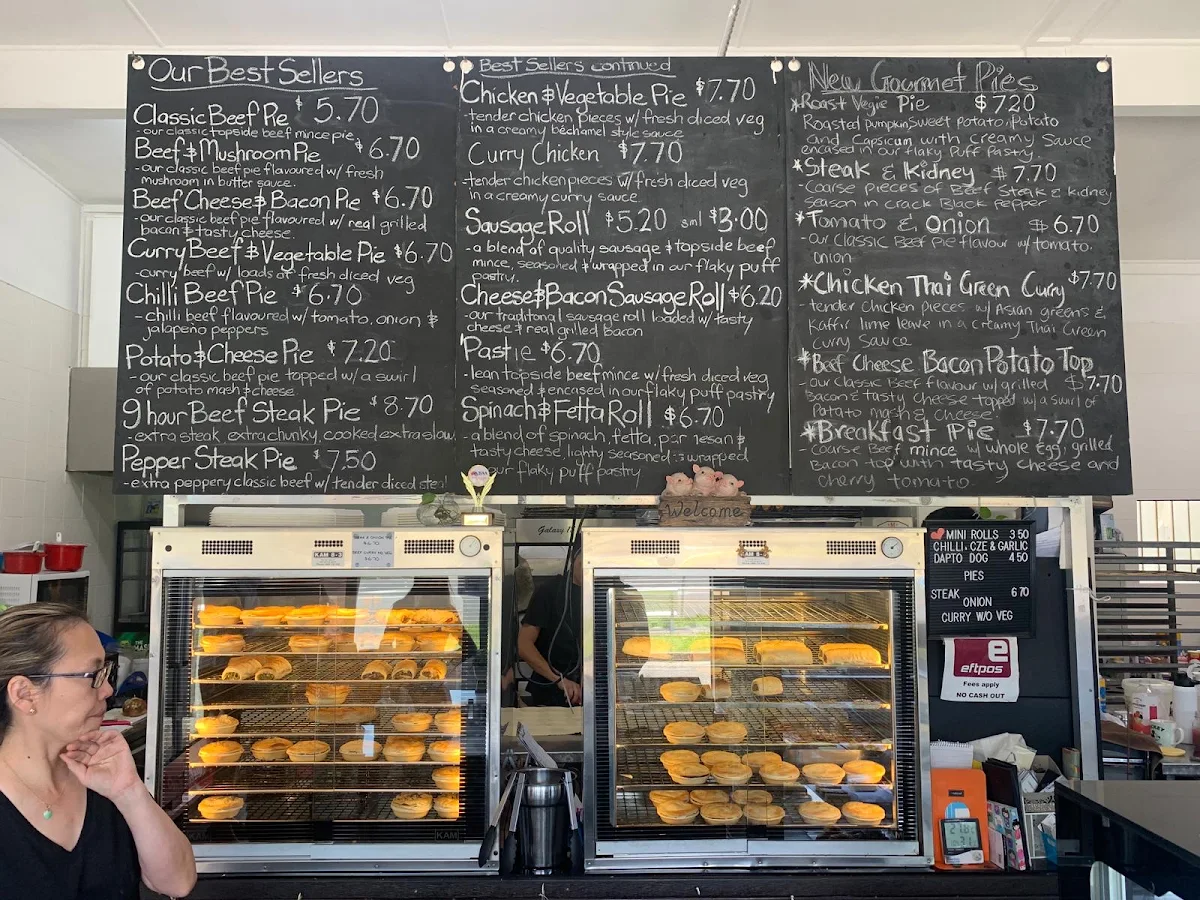 Our Best Sellers
Classic Beef Pie $5.70
-our classic topside beef mince pie
Beef & Mushroom Pie $6.70
-our classic beef pie flavoured w/ fresh
mushroom in butter sauce.
Beef Cheese & Bacon Pie $6.70
-our classic beef pie flavoured w/ real grilled
bacon & tasty cheese.
Curry Beef & Vegetable Pie $6.70
-curry beef w/ loads of fresh diced veg
Chilli Beef Pie $6.70
-chilli beef flavoured w/ tomato, onion &
jalapeño peppers
Potato & Cheese Pie $7.20
-our classic beef pie topped w/ a swirl
of potato mash & cheese
9 hour Beef Steak Pie $8.70
-extra steak, extra chunky, cooked extra slow.
Pepper Steak Pie $7.50
-extra peppery classic beef w/ tender diced
Best Sellers continued
Chicken & Vegetable Pie $7.70
-tender chicken pieces w/ fresh diced veg
in a creamy béchamel style sauce
Curry Chicken $7.70
-tender chicken pieces w/ fresh diced veg
in a creamy curry sauce.
Sausage Roll $5.20 sml $3.00
-a blend of quality sausage & topside beef
mince, seasoned & wrapped in our flaky puff
pastry.
Cheese & Bacon Sausage Roll $6.20
-our traditonal sausage roll loaded w/ tasty
cheese & real grilled bacon
Pastie $6.70
-lean topside beef mince w/ fresh diced veg
seasoned & encased in our flaky puff pastry
Spinach & Fetta Roll $6.70
-a blend of spinach, fetta, &
tasty cheese, lighty seasoned & wrapped
our flaky puff pastry
New Gourmet Pies
*Roast Vegie Pie $7.20
Roasted pumpkin, sweet potato, potato
and Capsicum with creamy sauce
encased in our flaky Puff Pastry.
*Steak & Kidney $7.70
-Coarse pieces of Beef Steak & kidney
season in crack Black Pepper
*Tomato & Onion $6.70
-our Classic Beef Pie flavour w/ tomato.
onion
*Chicken Thai Green Curry $7.70
-tender Chicken pieces w/ Asian greens &
Kaffir lime leave in a creamy Thai Green
Curry Sauce
*Beef Cheese Bacon Potato Top
-our Classic Beef flavour w/ grilled $7.70
Bacon & tasty cheese topped w/ a swirl of
Potato mash & cheese
*Breakfast Pie $7.70
-Coarse Beef mince w/ whole egg, grilled
Bacon top with tasty cheese and
cherry tomato.
Welcome
Galaxy
KAM
MINI ROLLS 3 50
CHILLI, CZE & GARLIC
DAPTO DOG 4 50
PIES
STEAK 6 70
ONION
CURRY W/O VEG
e
eftpos
Fees apply
NO CASH OUT
KAM